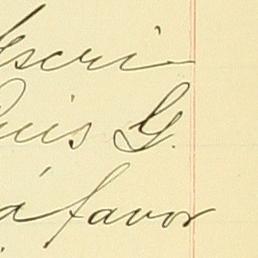 escri
Luis G.
a favor